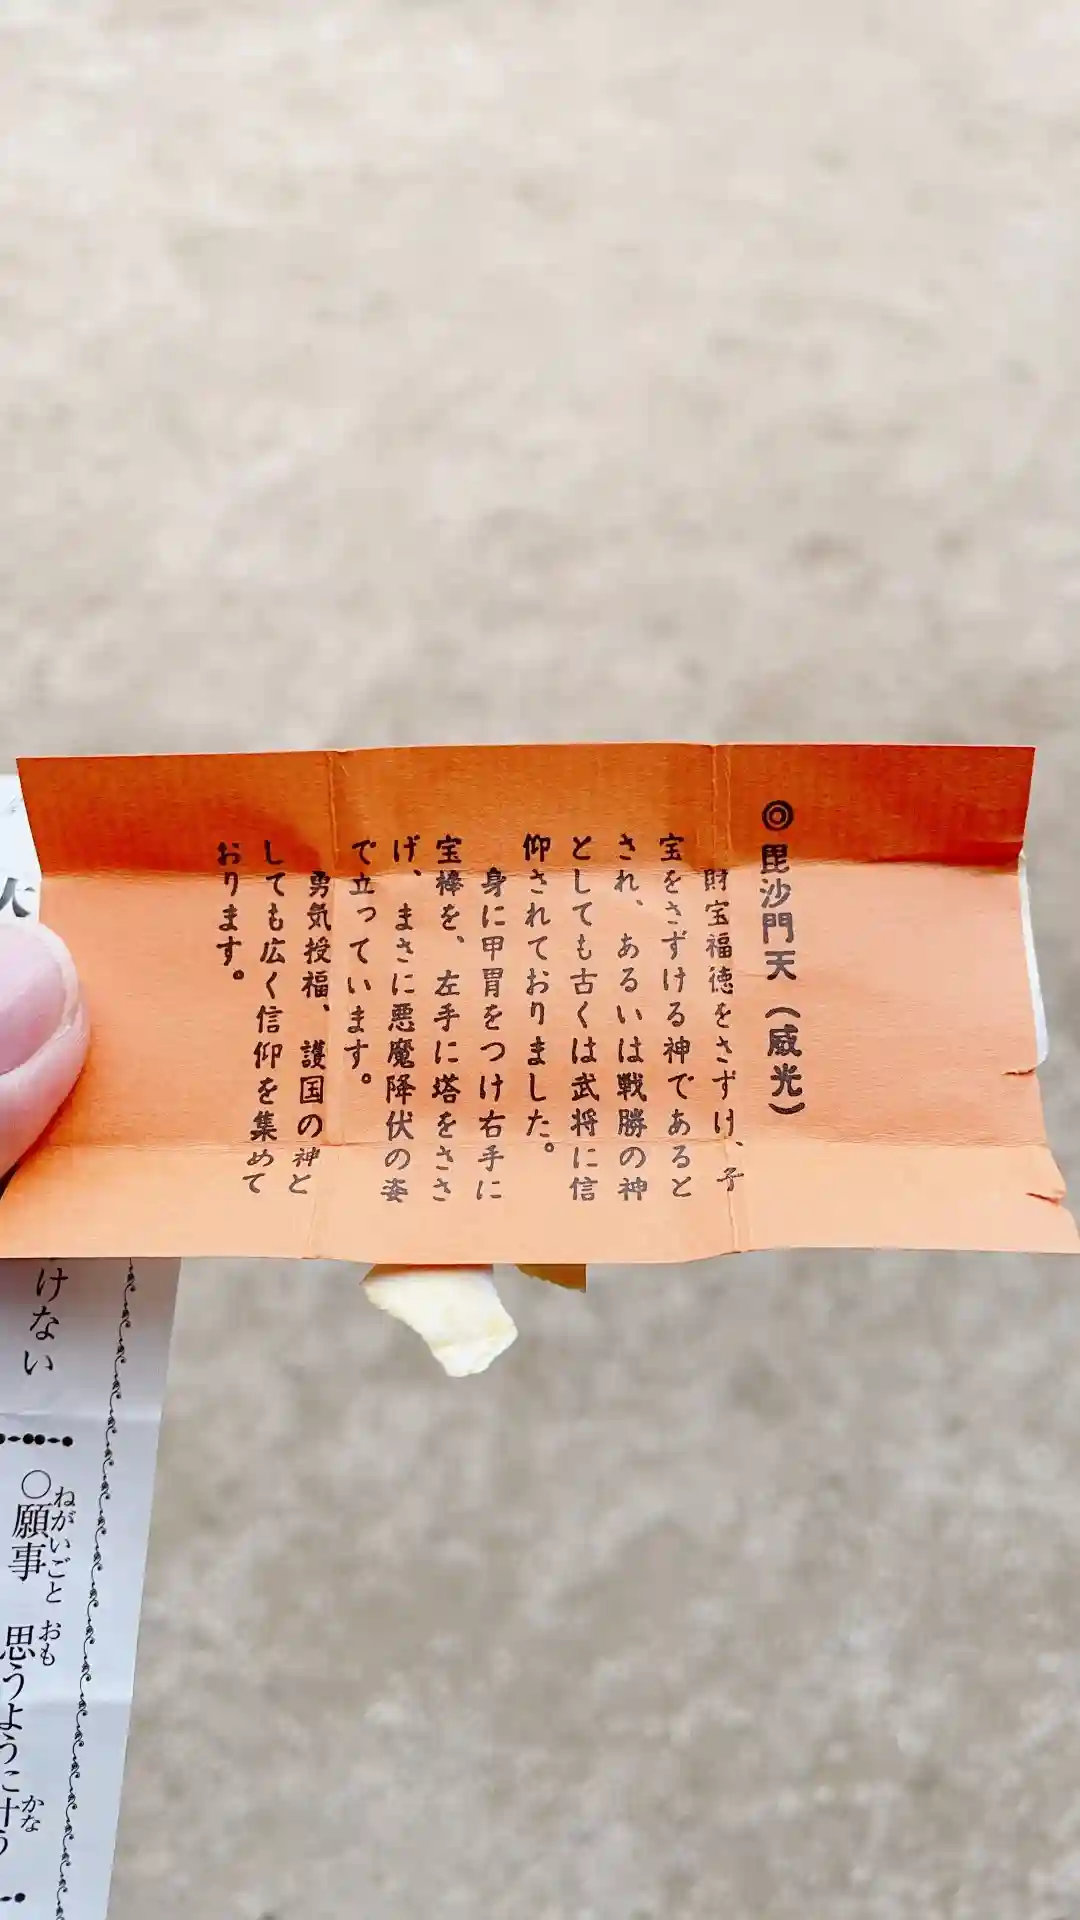 ◎毘沙門天（威光）
財宝福徳をさずけ、子
宝をさずける神であると
され、あるいは戦勝の神
としても古くは武将に信
仰されておりました。
身に甲冑をつけ右手に
宝棒を、左手に塔をささ
げ、まさに悪魔降伏の姿
で立っています。
勇気授福、護国の神と
しても広く信仰を集めて
おります。
けない
○願事 思うように叶う
ねがいごと おも かな